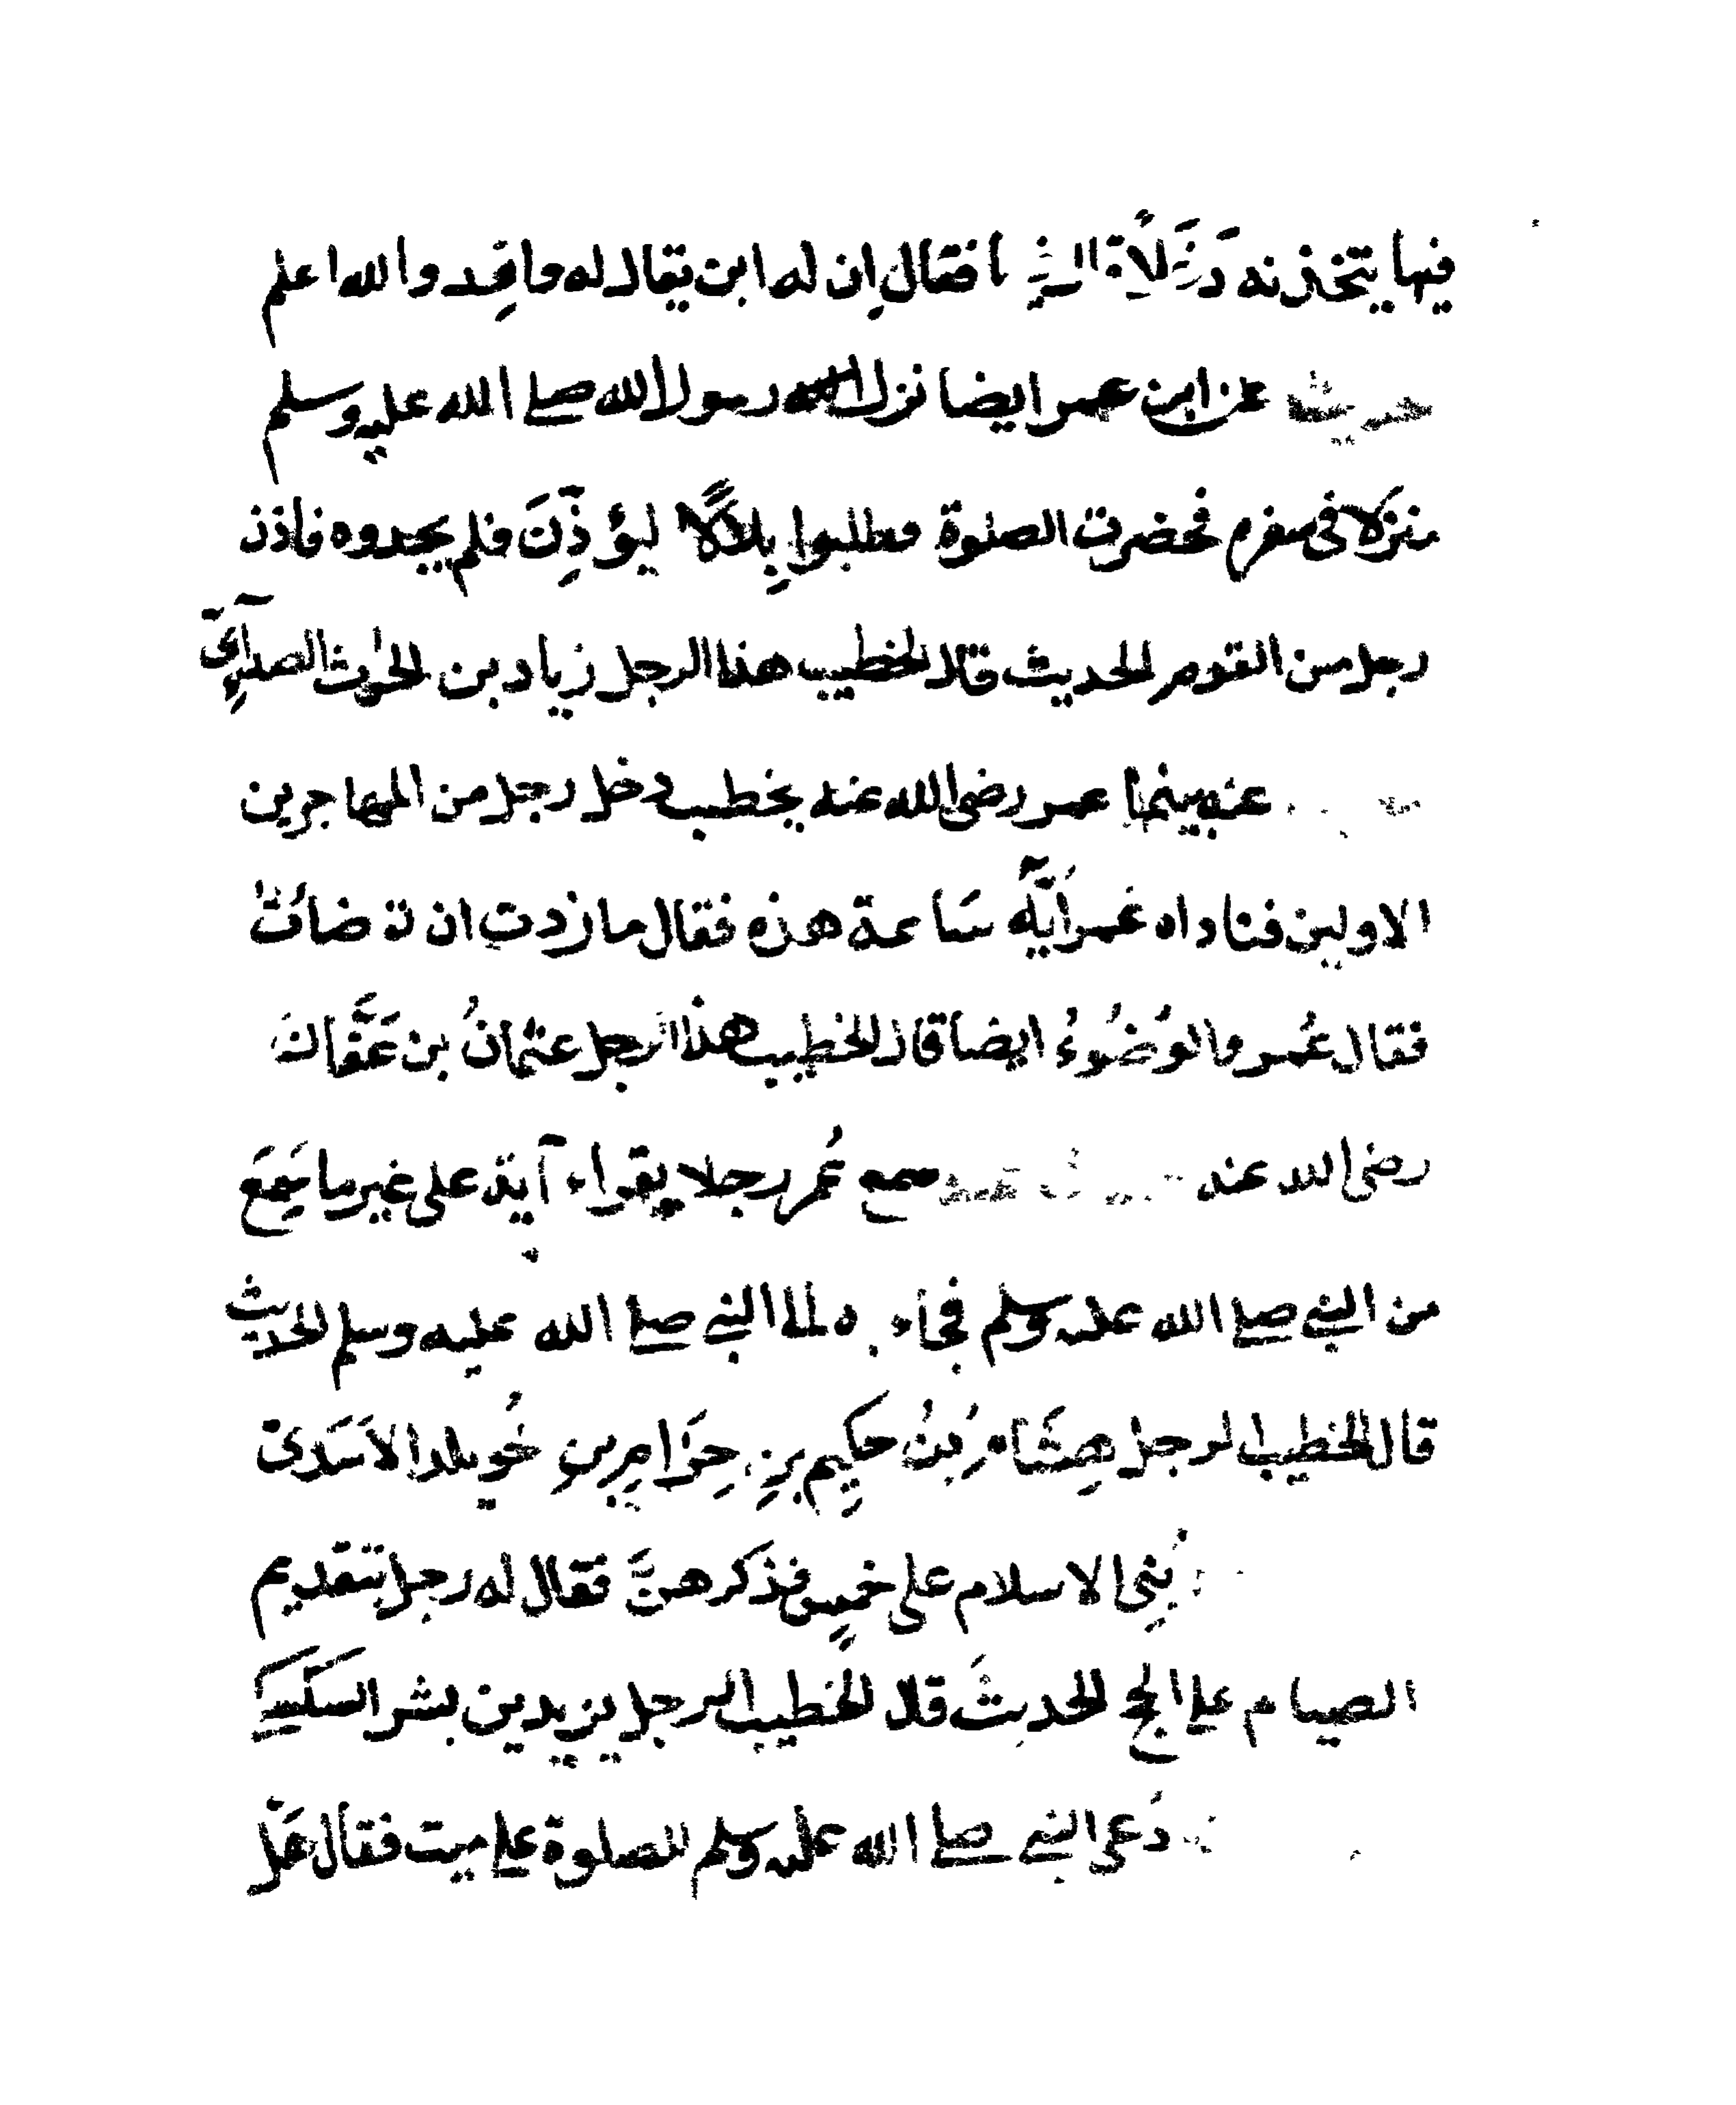 فيها يتخذنه دَغَلًا فقال إن له ابن يقال له واقد والله اعلم
حديث عن ابن عمر ايضا نزل رسول الله صلى الله عليه وسلم
منزلا فى سفرم فحضرت الصلوة فطلبوا بِلالًا ليؤذِّنَ فلم يجدوه فاذن
رجل من القوم الحديث قال الخطيب هذا الرجل زياد بن الحرث الصدآئى
عنه بينما عمر رضى الله عنه يخطب دخل رجل من المهاجرين
الاولين فناداه عمر اَيَّة سَاعة هذه فقال ما زدت ان توضأت
فقال عُمر والوُضُوءُ ايضا قال الخطيب هذا الرجل عثمانُ بن عَفَّانَ
رضى الله عنه سمع عُمر رجلا يقراء آية على غير ما سَمِعَ
من النبى صلى الله عليه وسلم فجاء به الى النبى صلى الله عليه وسلم الحديث
قال الخطيب الرجل هِشَامُ بْنُ حكِيم بنِ حِزَامِ بنِ خُويلد الاَسَدىّ
بُنِى الاسلام على خمسٍ فذكرهنَّ فقال له رجل بتقديم
الصيام على الحج الحديثَ قال الخطيب الرجل يزيد بن بشر السَكْسَكى
دُعى النبى صلى الله عليه وسلم للصلوة على ميت فقال هَل